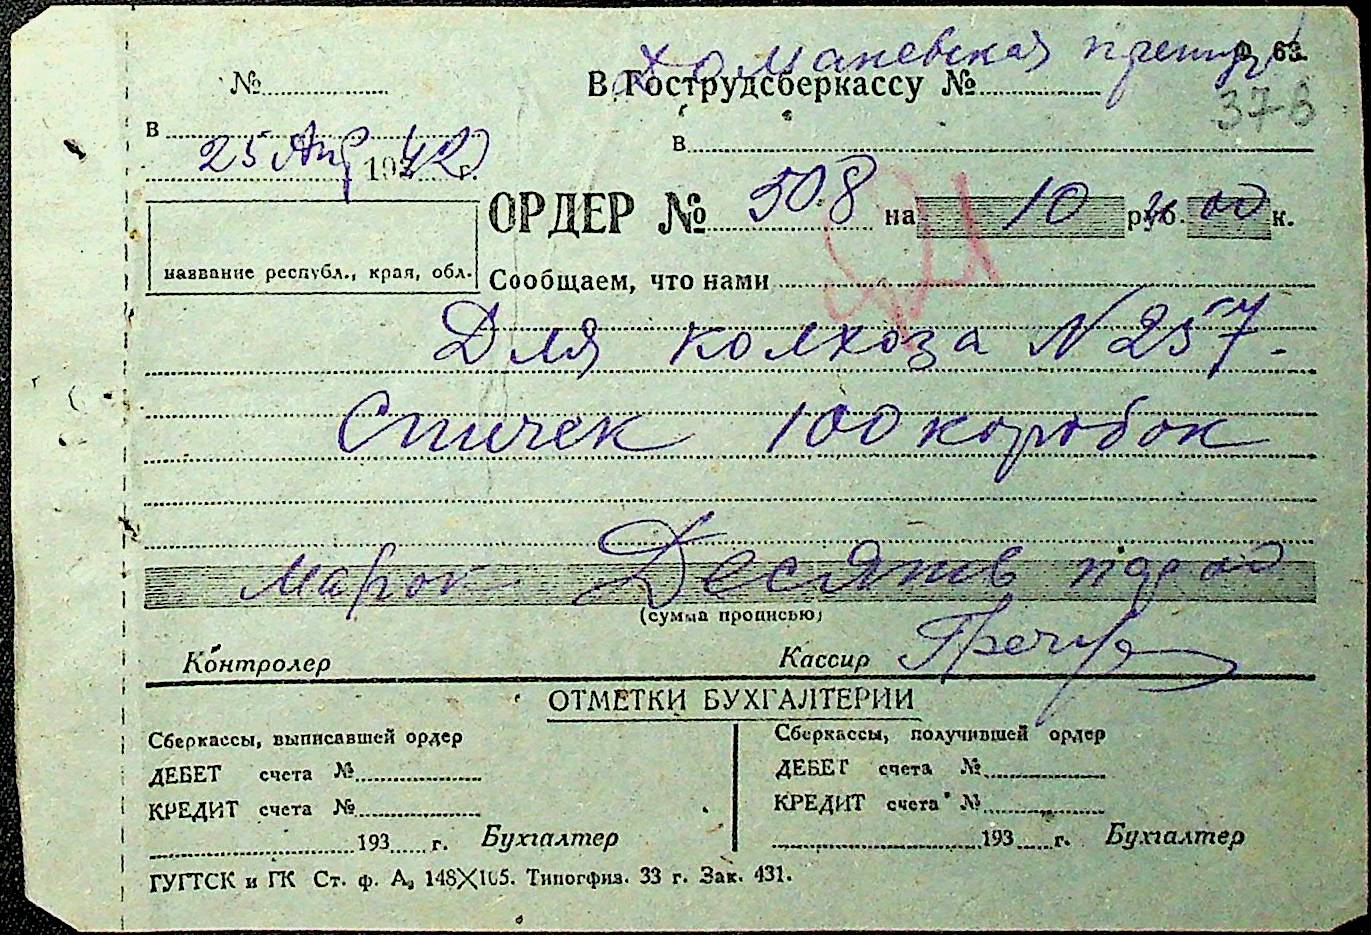 Ф. 63.
№
В Гострудсберкассу №
378
в
в
25 Апр 1942 г.
ОРДЕР № 508 на 10 руб. 00 к.
название республ., края, обл.
Сообщаем, что нами
Для колхоза N 257.
Спичек 100 коробок
Марок Десять 00
(сумма прописью)
Контролер
Кассир
ОТМЕТКИ БУХГАЛТЕРИИ
Сберкассы, выписавшей ордер
ДЕБЕТ счета №
КРЕДИТ счета №
193 г. Бухгалтер
Сберкассы, получившей ордер
ДЕБЕТ счета №
КРЕДИТ счета №
193 г. Бухгалтер
ГУГТСК и ГК Ст. ф. А, 148X105. Типогфиз. 33 г. Зак. 431.